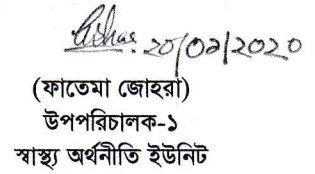 20/02/2020
(ফাতেমা জোহরা)
উপপরিচালক-১
স্বাস্থ্য অর্থনীতি ইউনিট